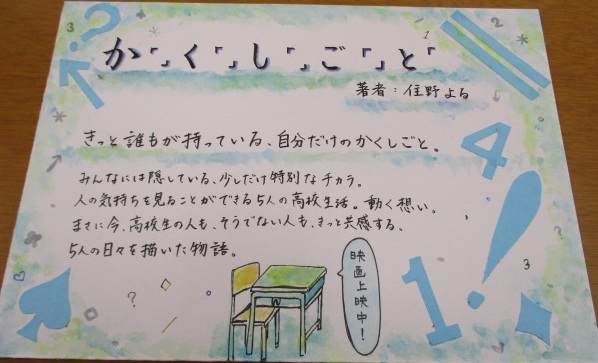 か「」く「」し「」ご「」と「
著者：住野よる
きっと誰もが持っている、自分だけのかくしごと。
みんなには隠している、少しだけ特別なチカラ。
人の気持ちを見ることができる5人の高校生活。動く想い。
まさに今、高校生の人も、そうでない人も、きっと共感する、
5人の日々を描いた物語。
映画上映中！
3
?
1
2
4
!
3
?
1